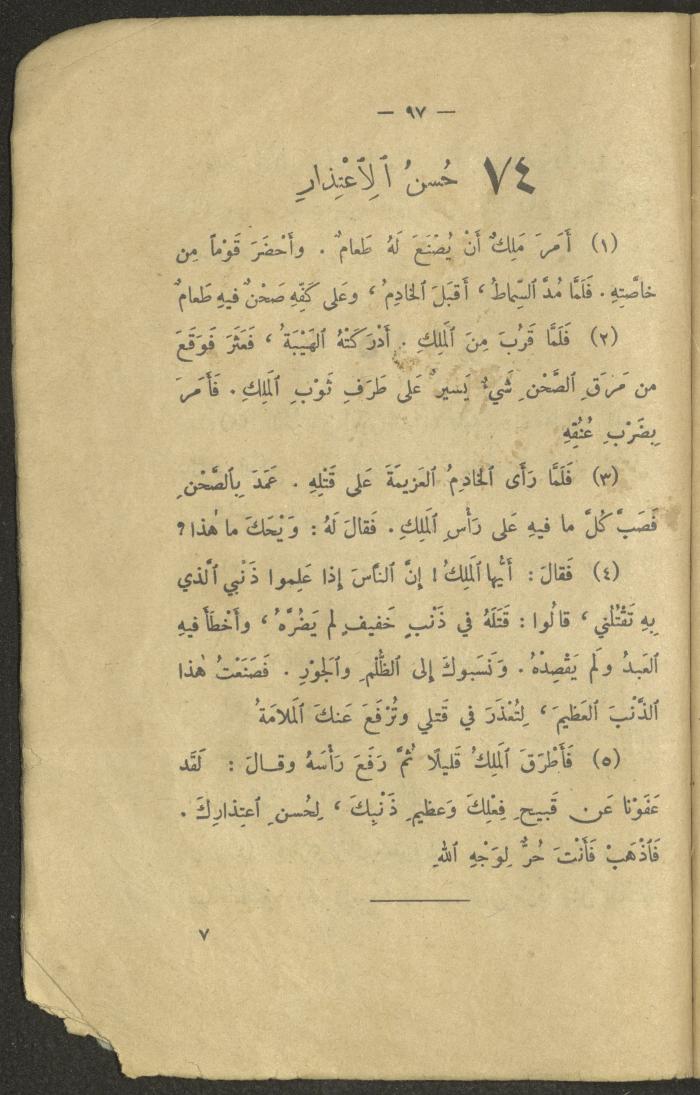 — ٩٧ —
٧٤ حُسنُ ٱلِٱعْتِذارِ
(١) أَمَرَ مَلِكٌ أَنْ يُصْنَعَ لَهُ طَعامٌ . وأَحْضَرَ قَوْماً مِن
خاصَّتِهِ . فَلَمَّا مُدَّ ٱلسِّماطُ ، أَقبَلَ ٱلخادِمُ ، وعَلى كَفِّهِ صَحْنٌ فيهِ طَعامٌ
(٢) فَلَمَّا قَرُبَ مِنَ ٱلَملِكِ . أَدْرَكَتْهُ ٱلهَيْبَةُ ، فَعَثَرَ فَوَقَعَ
من مَرَقِ ٱلصَّحْنِ شَيءٌ يَسيرٌ عَلى طَرَفِ ثَوْبِ ٱلَملِكِ . فَأَمَرَ
بِضَرْبِ عُنُقِهِ
(٣) فَلَمَّا رَأَى ٱلخادِمُ ٱلعَزيمَةَ عَلى قَتْلِهِ . عَمَدَ بِٱلصَّحْنِ
فَصَبَّ كُلَّ ما فيهِ عَلى رَأْسِ ٱلَملِكِ . فَقالَ لَهُ : وَيْحَكَ ما هٰذا؟
(٤) فَقالَ : أَيُّها ٱلَملِكُ ! إِنَّ ٱلنَّاسَ إِذا عَلِموا ذَنْبي ٱلَّذي
بِهِ تَقْتُلُني ، قالُوا : قَتَلَهُ في ذَنْبٍ خَفيفٍ لم يَضُرَّهُ ، وأَخْطَأَ فيهِ
ٱلعَبدُ ولَم يَقْصِدْهُ . وَنَسَبوكَ إِلى ٱلظُّلْمِ وٱلَجوْرِ . فَصَنَعْتُ هٰذا
ٱلذَّنْبَ ٱلعَظيمَ ، لِتُعْذَرَ في قَتلي وتُرْفَعَ عَنكَ ٱلَملامَةُ
(٥) فَأَطْرَقَ ٱلَملِكُ قَليلًا ثُمَّ رَفَعَ رَأْسَهُ وقـالَ : لَقَد
عَفَوْنا عَن قَبيحِ فِعْلِكَ وَعظيمِ ذَنْبِكَ ، لِحُسنِ ٱعتِذارِكَ .
فَٱذْهَبْ فَأَنْتَ حُرٌّ لِوَجْهِ ٱللهِ
٧